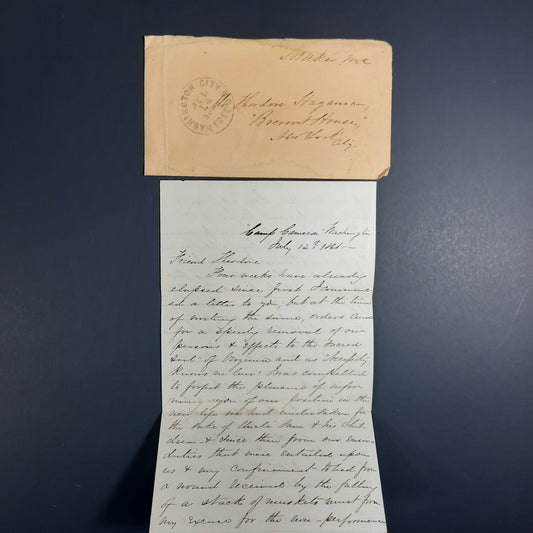 E Baker M C
WASHINGTON CITY
FREE
Theodore Hagaman,
"Brevoort House,"
New York
City.
"Camp Cameron" Washington
July 12th 1861—
Friend Theodore
Four weeks have already
elapsed since first I commenc-
ed a letter to you, but at the time
of writing the same, orders came
for a speedy removal of our
persons & effects to the "Sacred
Soil" of Virginia and as "Necessity
knows no law" I was compelled
to forfeit the pleasure of infor-
ming you of our position in the
new life we had undertaken for
the sake of Uncle Sam & his chil-
dren & since then from our
duties that were entailed upon
us & my confinement to bed from
a wound received by the falling
of a stack of muskets must form
my excuse for the non-performance